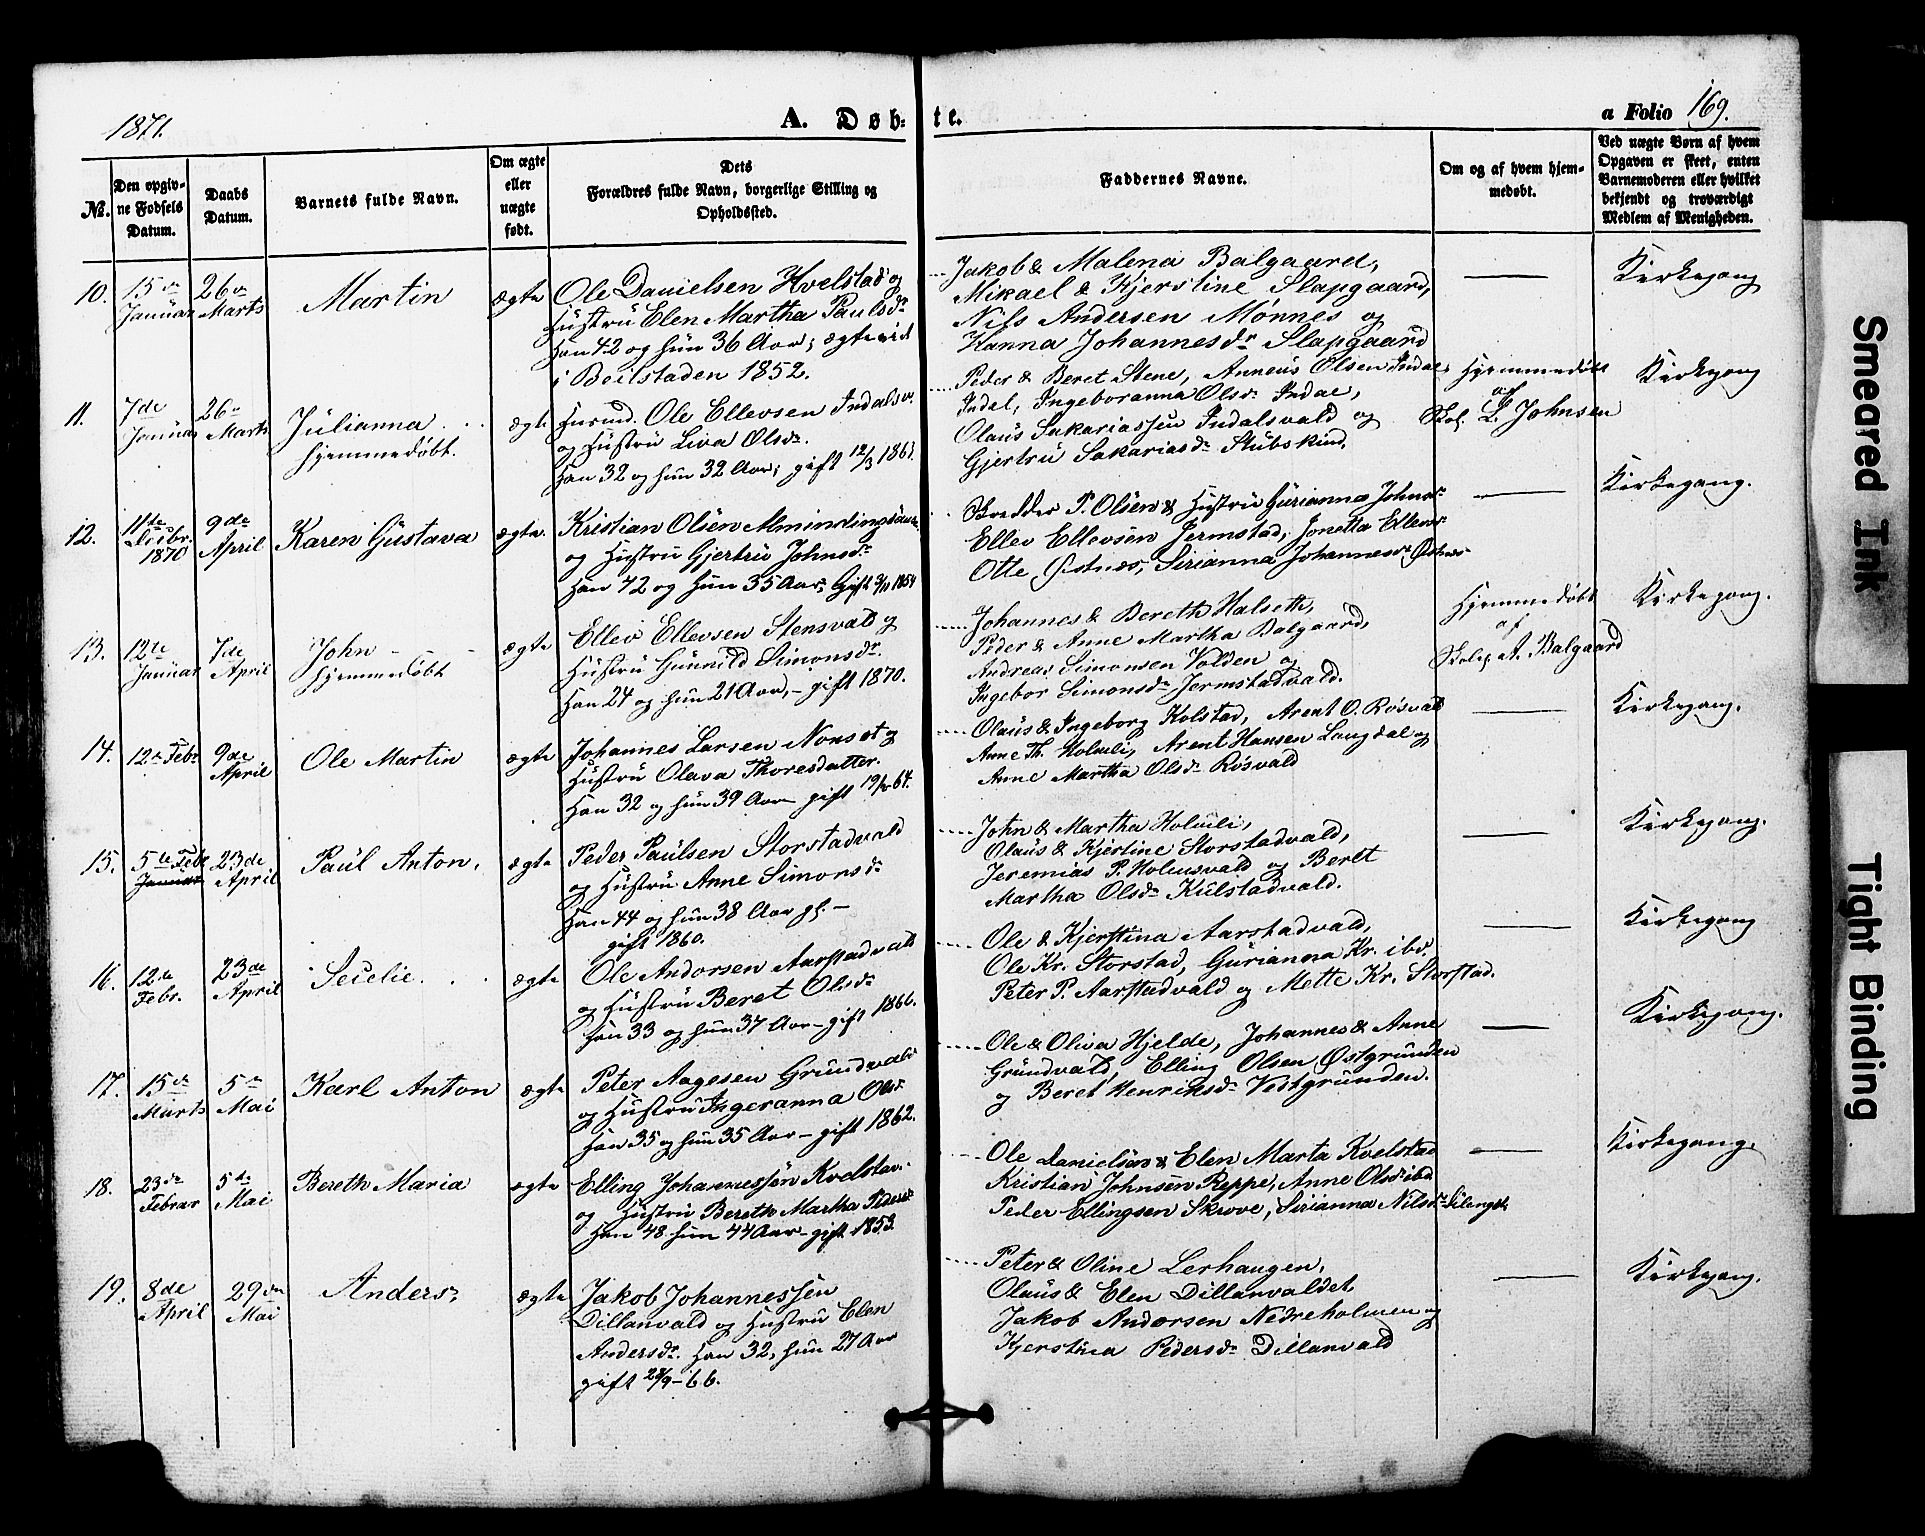 1871.
A. Døb-
te.
a Folio 169.
№.
Den opgiv-
ne Fødsels
Datum.
Daabs
Datum.
Barnets fulde Navn.
Om ægte
eller
uægte
født.
Dets
Forældres fulde Navn, borgerlige Stilling og
Opholdssted.
Faddernes Navne.
Om og af hvem hjem-
medøbt.
Ved uægte Børn af hvem
Opgaven er skeet, enten
Barnemoderen eller hvilket
bekjendt og troværdigt
Medlem af Menigheden.
10.
15de
Januar
26de
Marts
Martin
ægte
Ole Danielsen Hvelstad og
Hustru Elen Martha Paulsdr
Han 42 og hun 36 Aar; ægteviet
i Beitstaden 1852.
Jakob & Malena Balgaard,
Mikael & Kjerstine Slapgaard,
Nils Andersen Mønnes og
Hanna Johannesdr Slapgaard
Kirkegang
11.
7de
Januar
26de
Marts
Julianna
hjemmedøbt.
ægte
Husmd. Ole Ellevsen Indalsv.
og Hustru Liva Olsdr.
Han 32 og hun 32 Aar; gift 12/3 186
Peder & Beret Stene, Anneus Olsen Indal,
Indal, Ingeboranna Olsdr Indal,
Olaus Sakariassen Indalsvald og
Gjertru Sakariasdr Stubskind.
Hjemmedøbt
af
Skol. L. Johnsen
Kirkegang
12.
11te
Decbr.
1870
9de
April
Karen Gustava
ægte.
Kristian Olsen
og Hustru Gjertru Johnsdr
Han 42 og hun 35 Aar; Gift 3/11 1854
Skredder P. Olsen & Hustru Gurianna Johnsdr
Ellev Ellevsen Jermstad, Jonetta Ellevsdr
Otte Østnes, Sirianna Johannesdr Østnes
Kirkegang.
13.
12te
Januar
7de
April
John
hjemmedøbt
ægte
Ellev Ellevsen Stensvald og
Hustru Gunnild Simonsdr.
Han 24 og hun 21 Aar, - gift 1870.
Johannes & Bereth Halseth,
Peder & Anne Martha Balgaard,
Andreas Simonsen Volden og
Ingebor Simonsdr Jermstadvald.
Hjemmedøbt
af
Skolel. A. Balgaard
Kirkegang.
14.
12te Febr
9de
April
Ole Martin
ægte
Johannes Larsen Nonset og
Hustru Olava Thoresdatter.
Han 32 og hun 39 Aar gift 64.
Olaus & Ingeborg Kolstad, Arent O. Røsvald
Anne Th. Holmli, Arent Hansen Langdal og
Anne Martha Olsdr Røsvald
Kirkegang.
15.
5te Febr
Januar
23de
April
Paul Anton.
ægte
Peder Paulsen Storstadvald
og Hustru Anne Simonsdr
Han 44 og hun 38 Aar gl. -
gift 1860.
John & Martha Holmli,
Olaus & Kjerstine Storstadvald,
Jeremias P. Holmsvald og Beret
Martha Olsdr Kulstadvald.
Kirkegang.
16.
12de
Febr.
23de
April
Secelie
ægte
Ole Andorsen Aarstadvald
og Hustru Beret Olsdr
Han 33 og hun 37 Aar - gift 1866.
Ole & Kjerstina Aarstadvald,
Ole Kr. Storstad, Gurianna Kr. ibd.
Peter P. Aarstadvald og Mette Kr. Storstad.
Kirkegang
17.
15de
Marts
5te
Mai
Karl Anton
ægte
Peter Aagesen Grundvald
og Hustru Ingeranna Olsdr
Han 35 og hun 35 Aar - gift 1862.
Ole & Oliva Hjelde, Johannes & Anne
Grundvald, Elling Olsen Østgrunden
og Beret Henriksdr Vestgrunden.
Kirkegang.
18.
23de
Februar
5te
Mai
Bereth Maria
ægte
Elling Johannessen Kvelstad
og Hustru Bereth Martha Pedersdr
Han 48. hun 44 Aar - gift 1853.
Ole Danielsen & Elen Marta Kvelstad
Kristian Johnsen Reppe, Anne Olsdr ibd
Peder Ellingsen Skrove, Sirianna Nilsdr
Kirkegang.
19.
8de
April
29de
Mai
Anders
ægte
Jakob Johannessen
Dillanvald og Hustru Elen
Andersdr. Han 32, hun 27 Aar
gift 28/9-66.
Peter & Oline Lerhaugen,
Olaus & Elen Dillanvaldet
Jakob Andersen Nedreholmen og
Kjerstina Pedersdr Dillanvald
Kirkegang.
Smeared Ink
Tight Binding